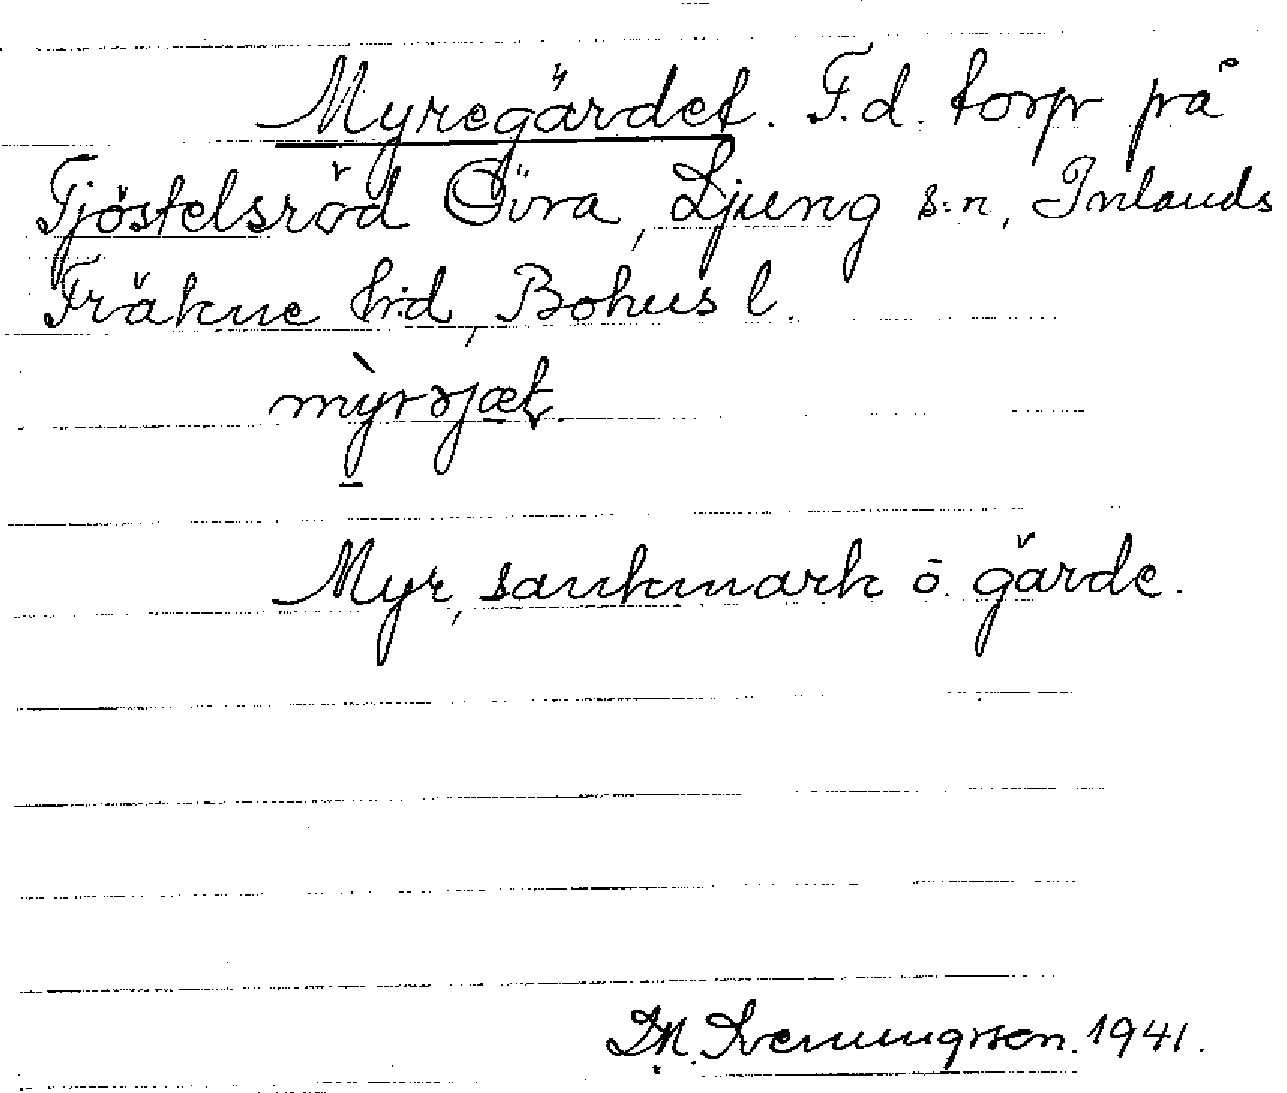 Myregärdet. F.d. torp på
Tjöstelsröd Övra, Ljung s:n, Inlands
Fräkne hd, Bohus l.
mỳrsjæt.
Myr, sankmark o. gärde.
1941.